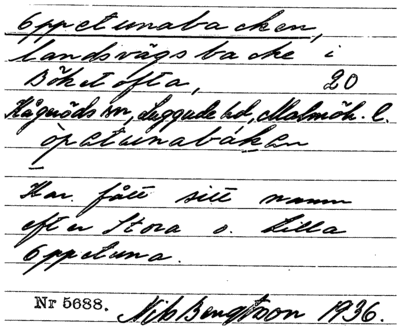 Oppetunabacken,
landsvägsbacke i
Böketofta, 20
Kågeröds sn, Luggude hd, Malmöh. l.
öpetunabákən
Har fått sitt namn
efter Stora o. Lilla
Oppetuna.
Nr 5688. Nils Bengtsson 1936.